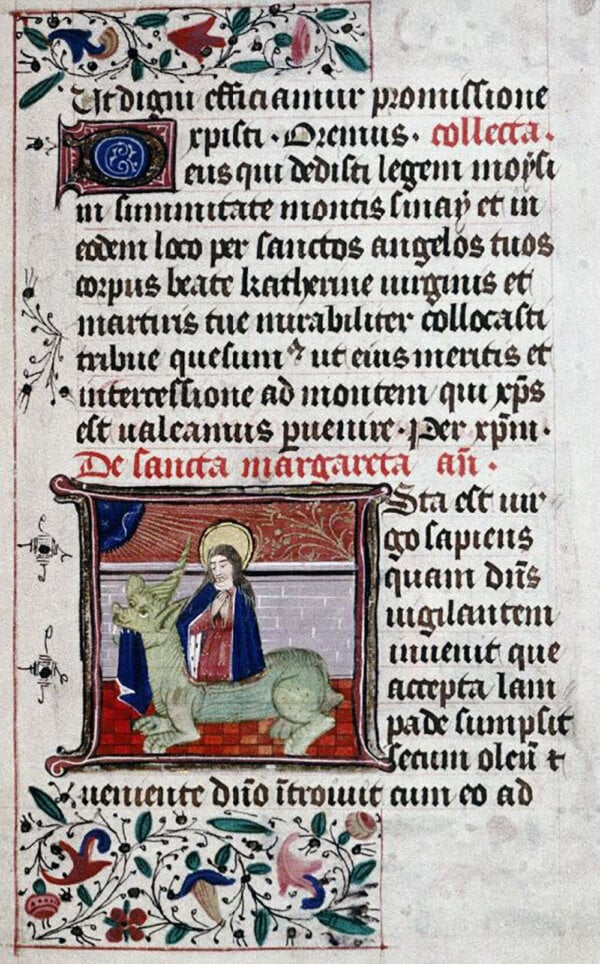 Ut digni efficiamur promissione
xpisti · Oremus · collecta ·
Deus qui dedisti legem moysi
in summitate montis sinay et in
eodem loco per sanctos angelos tuos
corpus beate katherine uirginis et
martiris tue mirabiliter collocasti
tribue quesumꝰ ut eius meritis et
intercessione ad montem qui xp̄s
est ualeamus ꝑuenire · Per xp̄m ·
De sancta margareta an̄ ·
Ista est uir
go sapiens
quam dn̄s
uigilantem
inuenit que
accepta lam
pade sumpsit
secum oleū ⁊
ueniente dn̄o ītroiuit cum eo ad